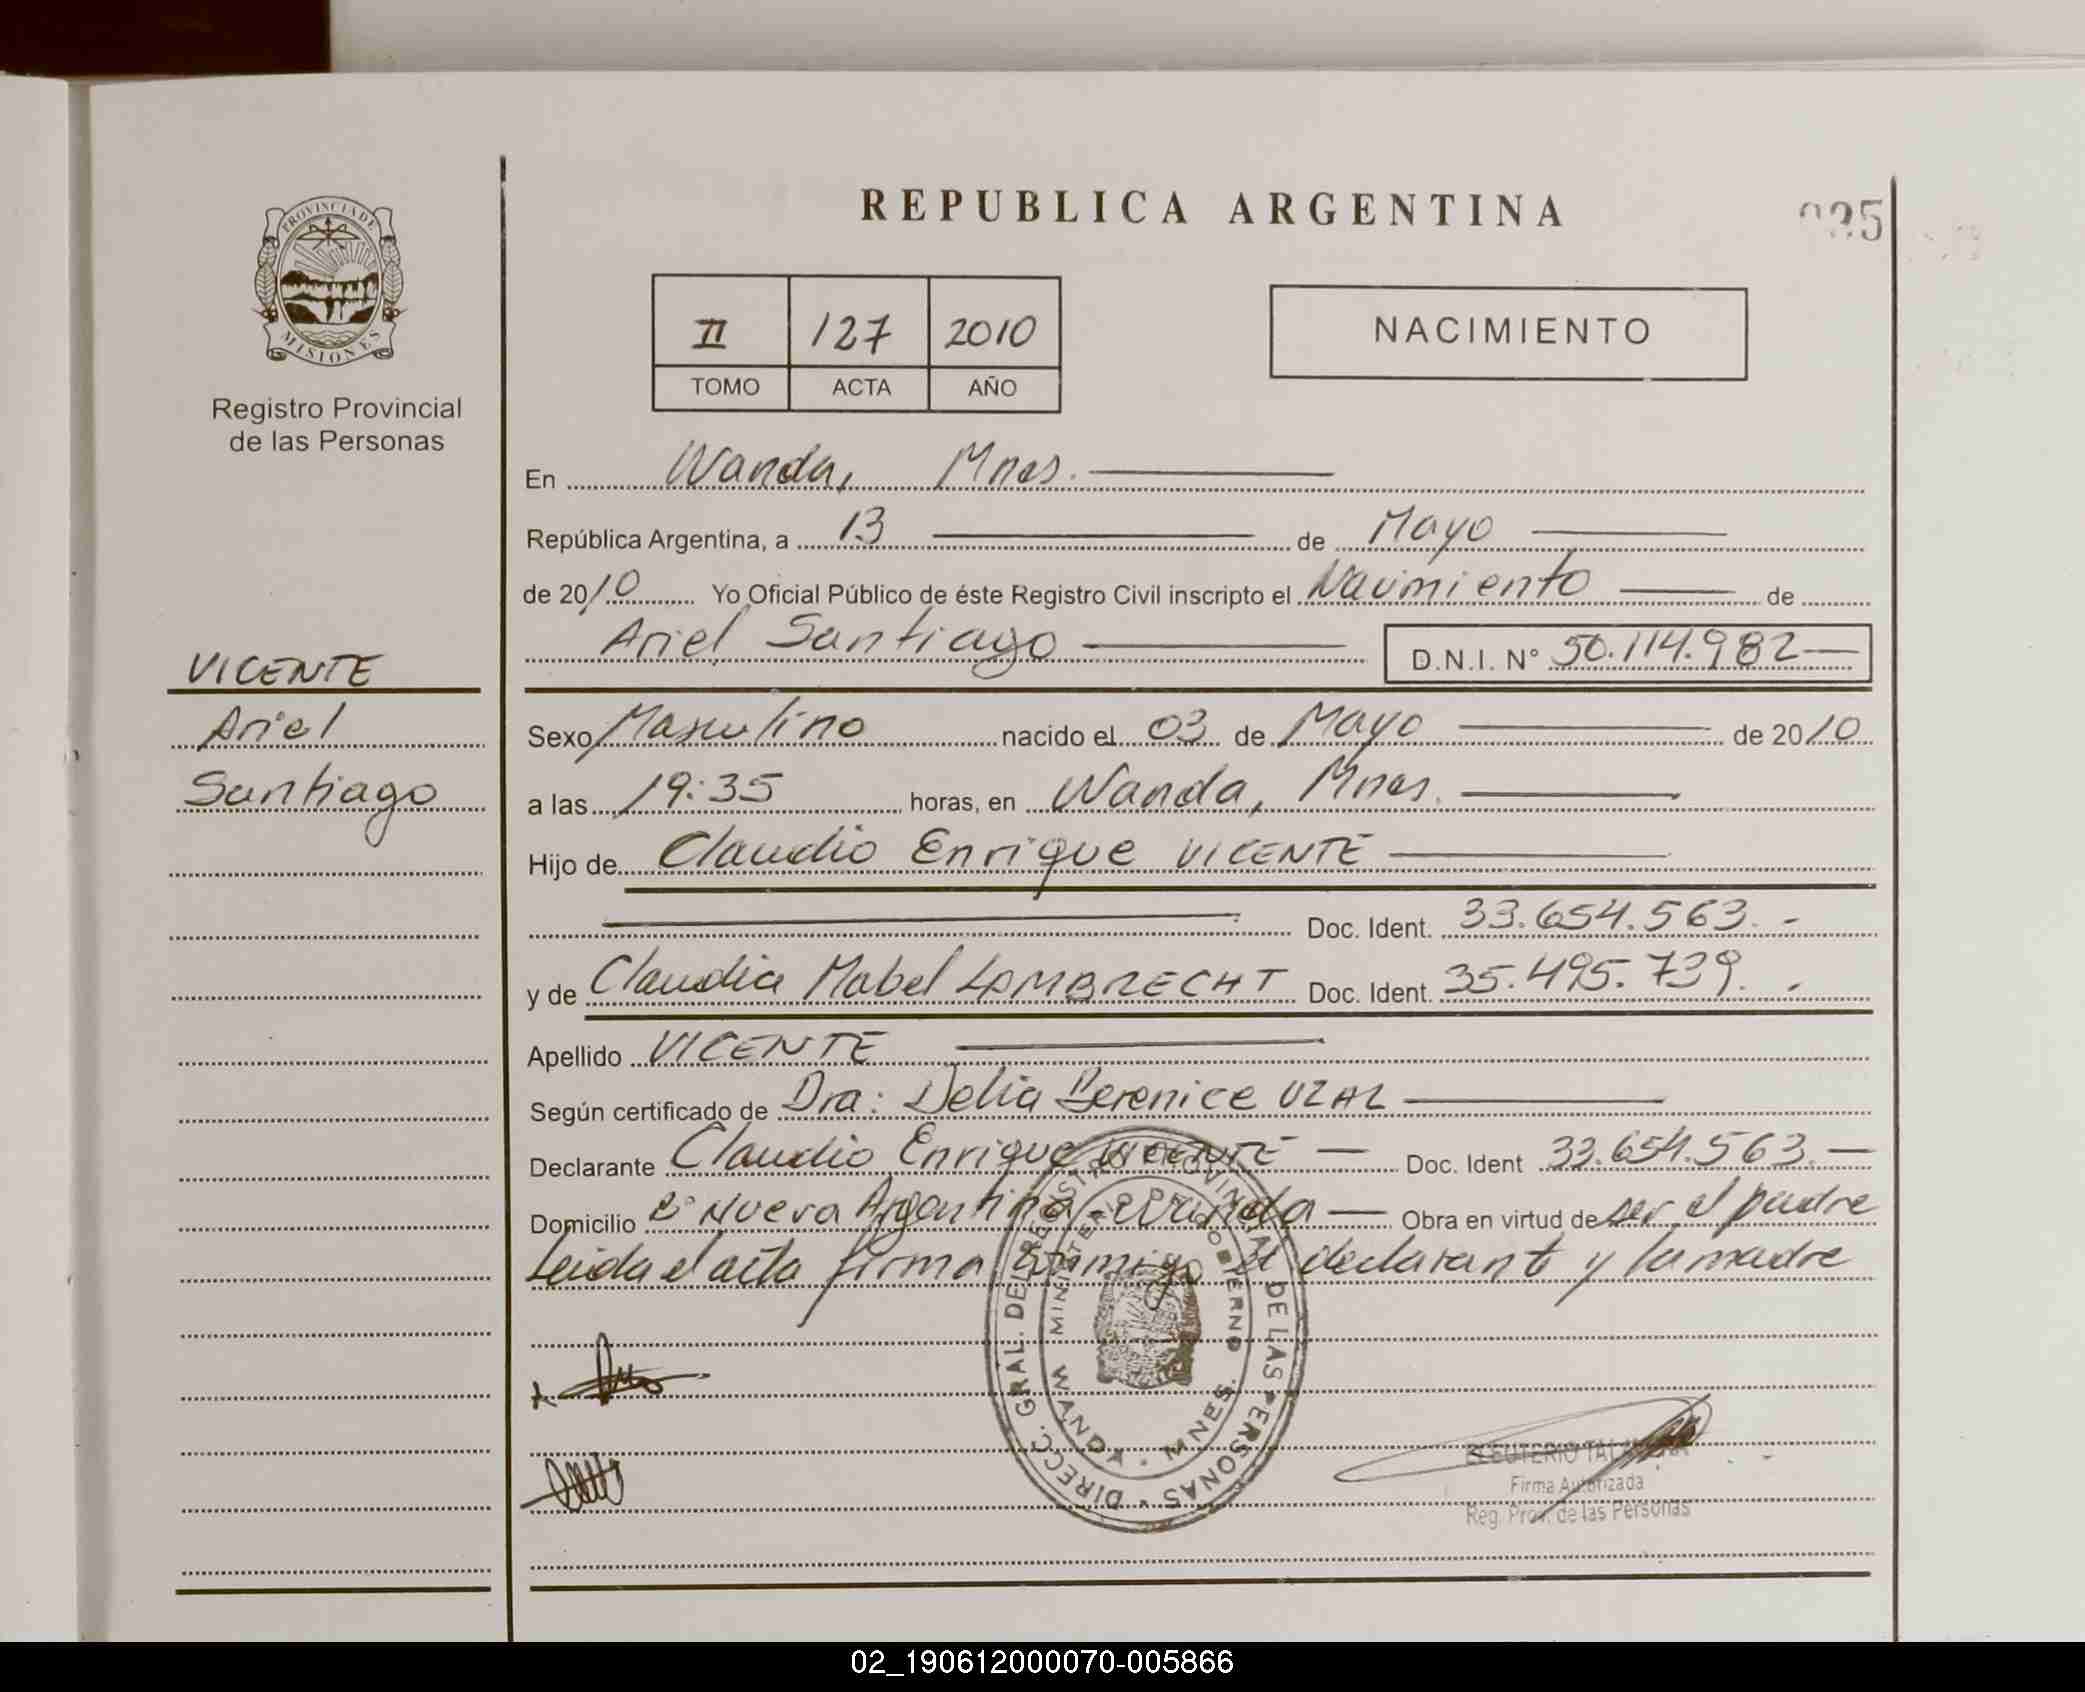 REPUBLICA ARGENTINA
035
PROVINCIA DE
MISIONES
Registro Provincial
de las Personas
II 127 2010
TOMO ACTA AÑO
NACIMIENTO
En Wanda, Mnes.
República Argentina, a 13 de Mayo
de 2010 Yo Oficial Público de éste Registro Civil inscripto el Nacimiento de
Ariel Santiago D.N.I. N° 50.114.982
VICENTE
Ariel
Santiago
Sexo Masculino nacido el 03 de Mayo de 2010
a las 19:35 horas, en Wanda, Mnes.
Hijo de Claudio Enrique VICENTE
Doc. Ident. 33.654.563.-
y de Claudia Mabel LAMBRECHT Doc. Ident. 35.495.739.-
Apellido VICENTE
Según certificado de Dra: Delia Berenice UZAL
Declarante Claudio Enrique VICENTE Doc. Ident 33.654.563.
Domicilio B° Nueva Argentina - Wanda Obra en virtud de ser el padre
Leida el acta firma conmigo el declarante y la madre
DIRECC. GRAL. DEL REGISTRO PROVINCIAL DE LAS PERSONAS
MINISTERIO DE GOBIERNO
WANDA - MNES.
ELEUTERIO
Firma Autorizada
Reg. Prov. de las Personas
02_190612000070-005866